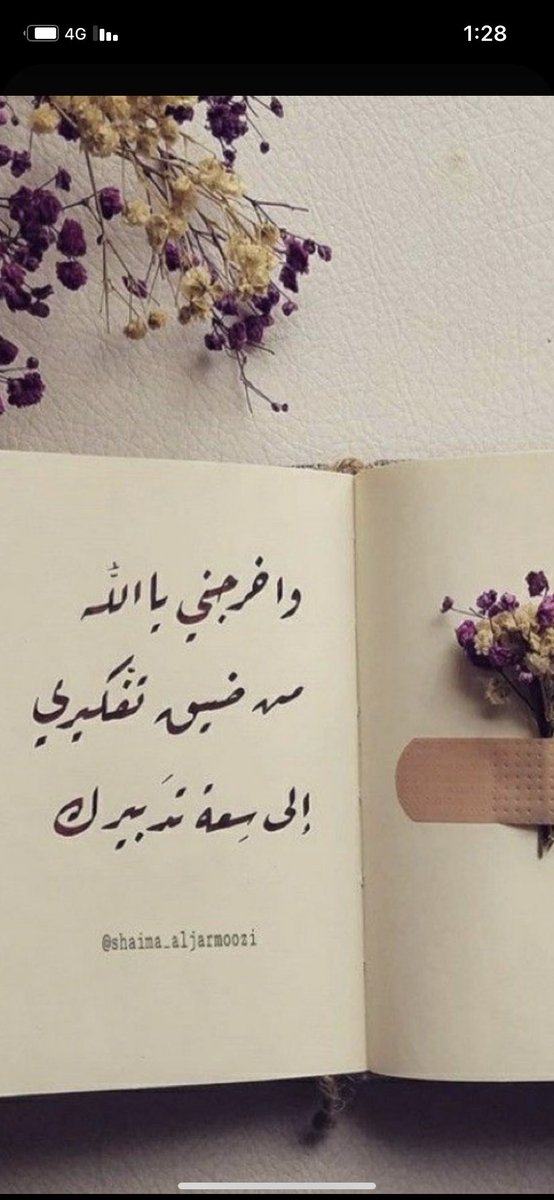 4G 1:28
واخرجني ياالله
من ضيق تفكيري
إلى سِعة تدَبيرك
@shaima_aljarmoozi